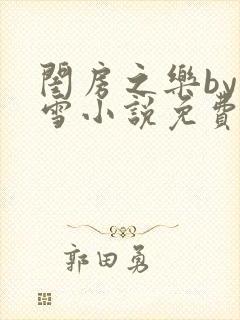 閨房之樂by
雪小說免費
郭田勇